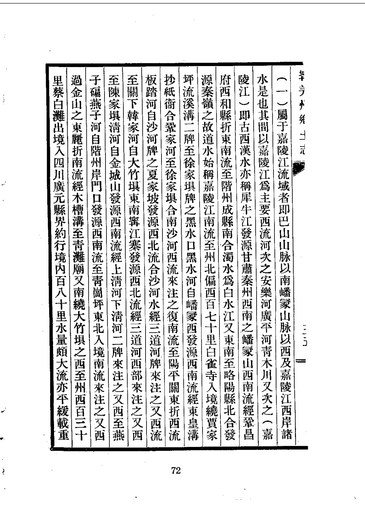 寧羌州鄉土志
三五
（一）屬于嘉陵江流域者即巴山山脉以南嶓冢山脉以西及嘉陵江西岸諸
水是也其間以嘉陵江爲主要西流河次之安樂河廣平河青木川又次之（嘉
陵江）即古西漢水亦稱犀牛江發源甘肅秦州西南之嶓冢山西南流經鞏昌
府西和縣折東南流至階州成縣南合濁水爲白水江又東南至略陽縣北合發
源秦嶺之故道水始稱嘉陵江南流至州北偏西百七十里白雀寺入境繞賈家
坪流溪溝二牌至徐家壩牌之黑水口黑水河自嶓冢西發源西南流經東皇溝
抄紙衙合鞏家河至徐家壩合南沙河西流來注之復南流至陽平關東折西流
板踏河自沙河牌之夏家坡發源西北流合沙河水經三道河牌來注之又西流
至關下韓家河自大竹壩東南寧江寨發源西北流經三道河西部來注之又西
至陳家壩清河自金城山發源西南流經上清河下清河二牌來注之又西至燕
子碥燕子河自階州岸門口發源西南流至青崗坪東北入境南流來注之又西
過金山之東麓折南流經木槽溝至青灘廟又南繞大竹壩之西至州西百三十
里蔡白灘出境入四川廣元縣界約行境內百八十里水量頗大流亦平緩載重
72